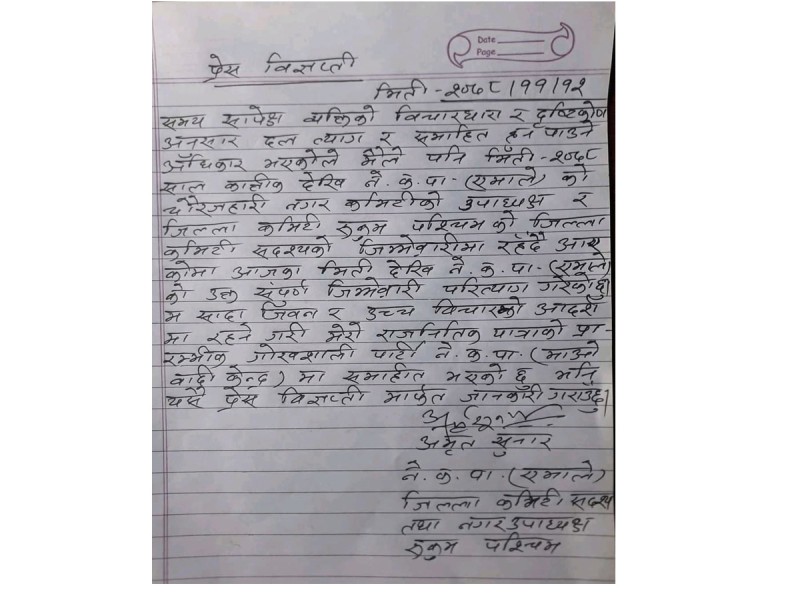 Date
Page
प्रेस विज्ञप्ती
मिती - २०७८/११/१२
समय सापेक्ष व्यक्तिको विचारधारा र दृष्टिकोण
अनुसार दल त्याग र समाहित हुन पाउने
अधिकार भएकोले मैले पनि मिती - २०७८
साल कात्तीक देखि ने. क. पा - (एमाले) को
चौरजहारी नगर कमिटीको उपाध्यक्ष र
जिल्ला कमिटी रुकुम पश्चिम को जिल्ला
कमिटी सदश्यको जिम्मेवारीमा रहँदै आए
कोमा आजका मिती देखि ने. क. पा - (एमाले)
को उक्त संपुर्ण जिम्मेवारी परित्याग गरेकोछु
म सादा जिवन र उच्च विचारको आदर्श
मा रहने गरी मेरो राजनितिक यात्राको प्रा-
रम्भीक गोरवशाली पार्टी ने. क. पा. (माओ
वादी केन्द्र) मा समाहीत भएको छु भनि
यसै प्रेस विज्ञप्ती मार्फत जानकारी गराउँछु।
अमृत सुनार
ने. क. पा. (एमाले)
जिल्ला कमिटी सदश्य
तथा नगर उपाध्यक्ष
रुकुम पश्चिम